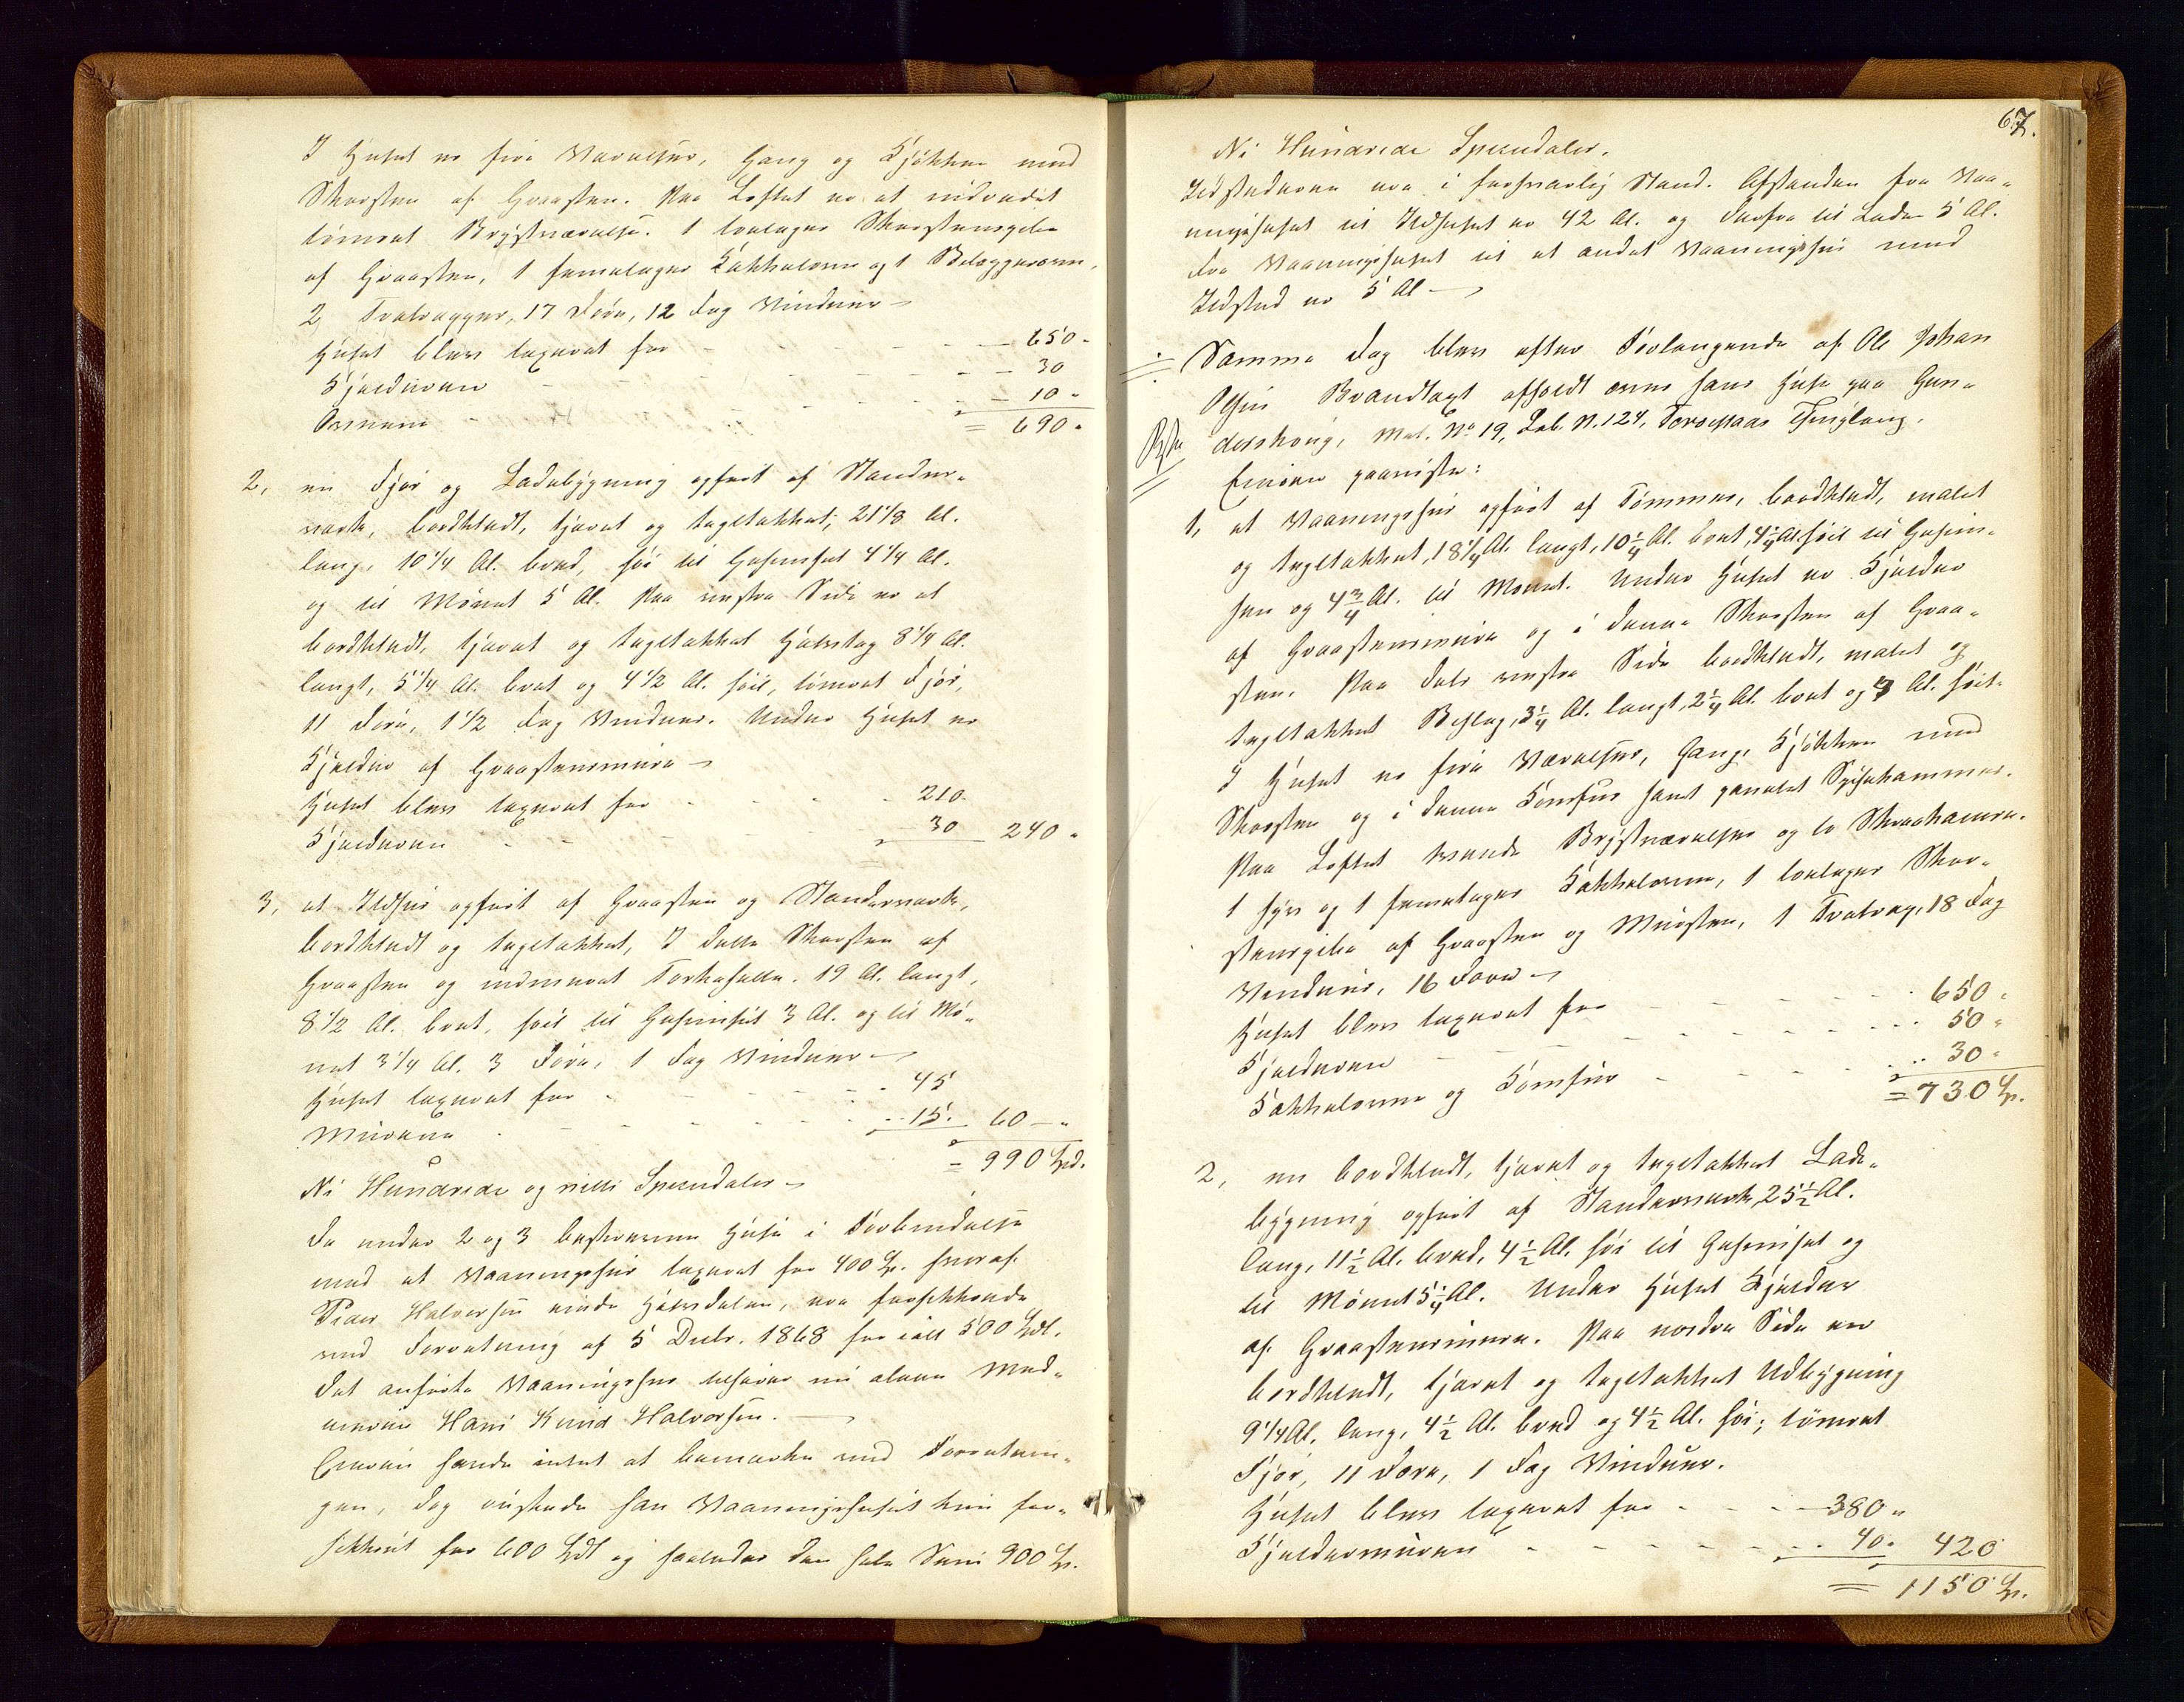 I Huset er fire Værelser, Gang og Kjøkken med
Skorsten af Graasten. Paa Loftet er et indredet
tømret Brystværelse. 1 toetages Skorstenspibe
af Graasten, 1 femetages Kakkelovn og 1 Bilæggerovn,
2 Tralvapper, 17 Døre, 12 Fag Vinduer
Huset blev taxeret for - - - 650 "
Kjelderen - - - 30
Ovnene - - - 10 "
= 690 "
2, en Fjøs og Ladebygning opført af Stænder-
værk, bordklædt, tjæret og tagltækket, 21 1/8 Al.
lang, 10 1/4 Al. bred, høi til Gesimset 4 1/4 Al.
og til Mønet 5 Al. Paa vestre Side er et
bordklædt, tjæret og tagltækket Halvtag 8 1/4 Al.
langt, 5 1/4 Al. bret og 4 1/2 Al. høit, tømret Fjøs,
11 Døre, 1 1/2 Fag Vinduer. Under Huset er
Kjelder af Graastensmure
Huset blev taxeret for - - - 210
Kjelderen - - - 30 240 "
3, et Ildhus opført af Graasten og Stænderværk,
bordklædt og tagltækket, I dette Skorsten af
Graasten og indmuret Tørkehelle. 19 Al. langt,
8 1/2 Al. bret, høit til Gesimset 3 Al. og til Mø-
net 3 1/4 Al. 3 Døre, 1 Fag Vinduer
Huset taxeret for - - - 45
Murene - - - 15. 60 - "
= 990 Spd.
Ni Hundrede og nitti Speciedaler
De under 2 og 3 beskrevne Huse i Forbindelse
med et Vaaningshus taxeret for 400 Sp. hvoraf
Peder Halvorsen eiede Halvdelen, var forsikkrede
ved Forretning af 5 Decbr. 1868 for ialt 500 Spdl.
Det anførte Vaaningshus tilhører nu alene Med-
eieren Hans Knud Halvorsen.
Eieren havde intet at bemærke ved Forretnin-
gen, dog ønskede han Vaaningshuset kun for-
sikkret for 600 Spdl og saaledes den hele Sum 900 Sp.
67.
Ni Hundrede Speciedaler.
Ildstederne var i forsvarlig Stand. Afstanden fra Vaa-
ningshuset til Ildhuset er 42 Al. og derfra til Laden 5 Al.
Fra Vaaningshuset til et andet Vaaningshus med
Ildsted er 5 Al
Samme Dag blev efter Forlangende af Ole Johan
Olsen Brandtaxt afholdt over hans Huse paa Gun-
dershoug, Mat. No 19, Løb. N. 124, Thinglaug.
Eieren paaviste:
1, et Vaaningshus opført af Tømmer, bordklædt, malet
og tagltækket, 18 1/4 Al. langt, 10 1/4 Al. bret, 4 1/4 Al. høit til Gesim-
sen og 4 3/4 Al. til Mønet. Under Huset er Kjelder
af Graastensmure og i denne Skorsten af Graa-
sten. Paa dets vestre Side bordklædt, malet og
tagltækket Bislag, 3 1/4 Al. langt, 2 1/4 Al. bret og 4 Al. høit.
I Huset er fire Værelser, Gang, Kjøkken med
Skorsten og i denne Komfur samt panelet Spisekammer.
Paa Loftet tvende Brystværelser og to Skraakamre.
1 fyr og 1 femetages Kakkelovn, 1 toetages Skor-
stenspibe af Graasten og Mursten, 1 Tralvap, 18 Fag
Vinduer, 16 Døre
Huset blev taxeret for - - - 650 "
Kjelderen - - - 50 "
Kakkelovne og Komfur - - - 30 "
= 730 Sp.
2, en bordklædt, tjæret og tagltækket Lade-
bygning opført af Stænderværk, 25 1/2 Al.
lang, 11 1/2 Al. bred, 4 1/2 Al. høi til Gesimset og
til Mønet 5 1/4 Al. Under Huset Kjelder
af Graastensmure. Paa nordre Side en
bordklædt, tjæret og tagltækket Udbygning
9 1/4 Al. lang, 4 1/2 Al. bred og 4 1/2 Al. høi; tømret
Fjøs, 11 Døre, 1 Fag Vinduer.
Huset blev taxeret for - - - 380 "
Kjeldermuren - - - 40. 420
= 1150 Sp.